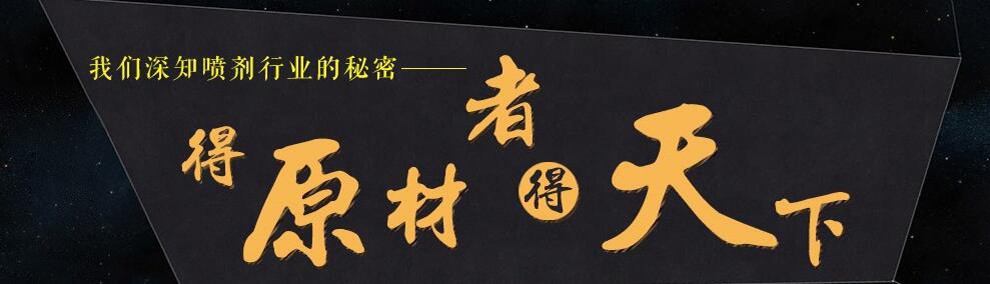 我们深知喷剂行业的秘密——
得原材者得天下